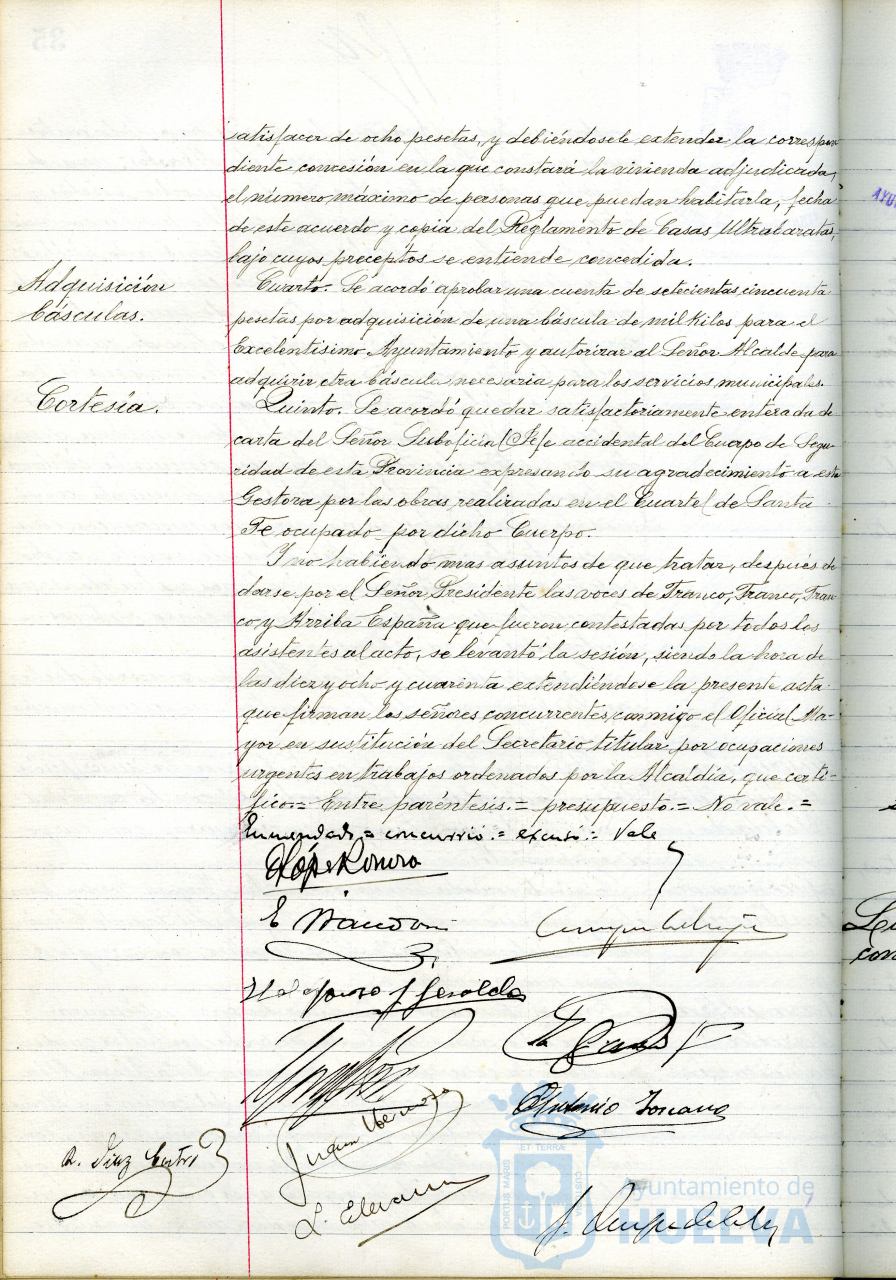 satisfacer de ocho pesetas, y debiéndosele extender la correspon-
diente concesión en la que constará la vivienda adjudicada,
el número máximo de personas que puedan habitarla, fecha
de este acuerdo y copia del Reglamento de Casas Ultrabaratas,
bajo cuyos preceptos se entiende concedida.
Adquisición
básculas.
Cuarto. Se acordó aprobar una cuenta de setecientas cincuenta
pesetas por adquisición de una báscula de mil kilos para el
Excelentísimo Ayuntamiento y autorizar al Señor Alcalde para
adquirir otra báscula necesaria para los servicios municipales.
Cortesía.
Quinto. Se acordó quedar satisfactoriamente enterada de
carta del Señor Suboficial Jefe accidental del Cuerpo de Segu-
ridad de esta Provincia expresando su agradecimiento a esta
Gestora por las obras realizadas en el Cuartel de Santa
Fe ocupado por dicho Cuerpo.
Y no habiendo mas assuntos de que tratar, después de
darse por el Señor Presidente las voces de Franco, Franco, Fran-
co, y Arriba España que fueron contestadas por todos los
asistentes al acto, se levantó la sesión, siendo la hora de
las diez y ocho y cuarenta extendiéndose la presente acta
que firman los señores concurrentes, conmigo el Oficial Ma-
yor en sustitución del Secretario titular por ocupaciones
urgentes en trabajos ordenados por la Alcaldía, que certi-
fico.= Entre paréntesis.= presupuesto.= No vale.=
Enmendado = concurrió.= excusó.= Vale
Antonio Toscano
R. Díaz
ET TERRÆ
PORTUS MARIS
CUSTODIA
Ayuntamiento de
HUELVA